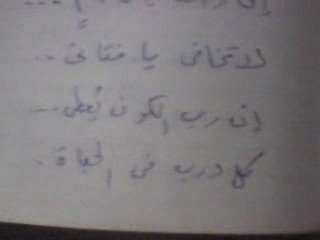 لا تخافى يا فتاتى ...
إن رب الكون يُعطى ...
كل درب فى الحياة .